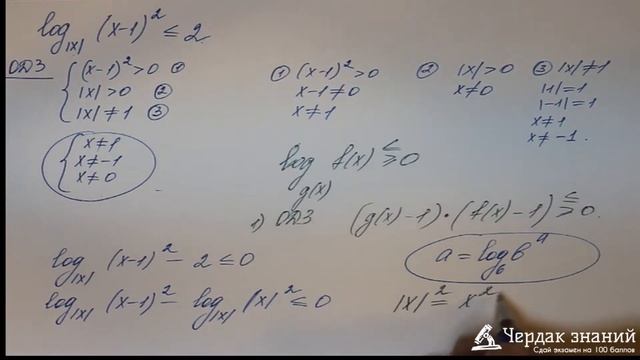 log_|x| (x-1)² ≤ 2
ОДЗ
{ (x-1)² > 0 ①
|x| > 0 ②
|x| ≠ 1 ③
{ x≠1
x≠-1
x≠0
① (x-1)² > 0
x-1≠0
x≠1
② |x| > 0
x≠0
③ |x|≠1
|1|=1
|-1|=1
x≠1
x≠-1.
log_g(x) f(x) ⋚ 0
1) ОДЗ (g(x)-1)·(f(x)-1) ⋚ 0.
log_|x| (x-1)² - 2 ≤ 0
a = log_b b^a
log_|x| (x-1)² - log_|x| |x|² ≤ 0
|x|² = x²
Чердак знаний
Сдай экзамен на 100 баллов